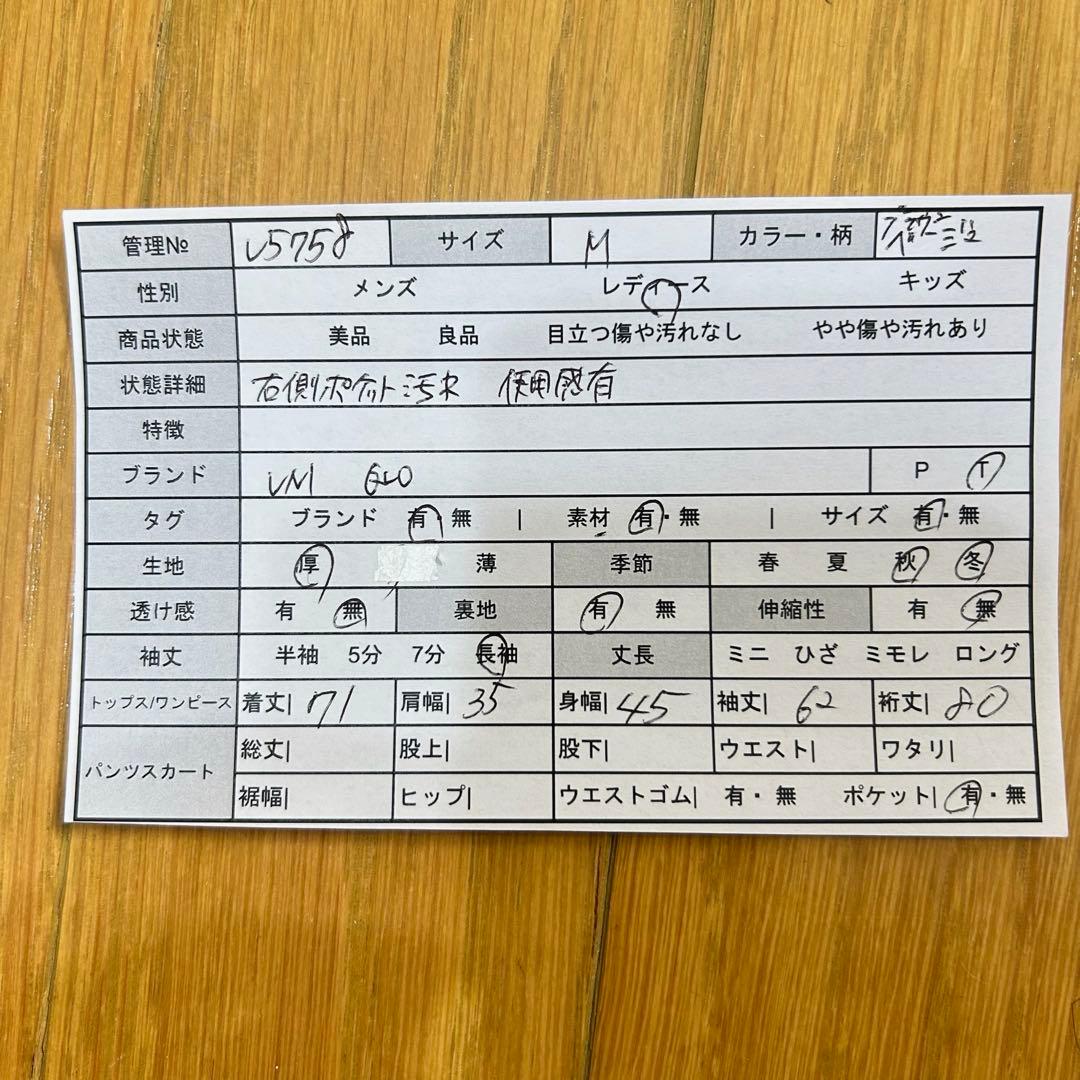 管理№ V5758 サイズ M カラー・柄
性別 メンズ レディース キッズ
商品状態 美品 良品 目立つ傷や汚れなし やや傷や汚れあり
状態詳細 右側ポケット汚れ 使用感有
特徴
ブランド UNI QLO P T
タグ ブランド 有・無 | 素材 有・無 | サイズ 有・無
生地 厚 薄 季節 春 夏 秋 冬
透け感 有 無 裏地 有 無 伸縮性 有 無
袖丈 半袖 5分 7分 長袖 丈長 ミニ ひざ ミモレ ロング
トップス/ワンピース 着丈| 71 肩幅| 35 身幅| 45 袖丈| 62 裄丈| 80
パンツスカート 総丈| 股上| 股下| ウエスト| ワタリ|
裾幅| ヒップ| ウエストゴム| 有・無 ポケット| 有・無